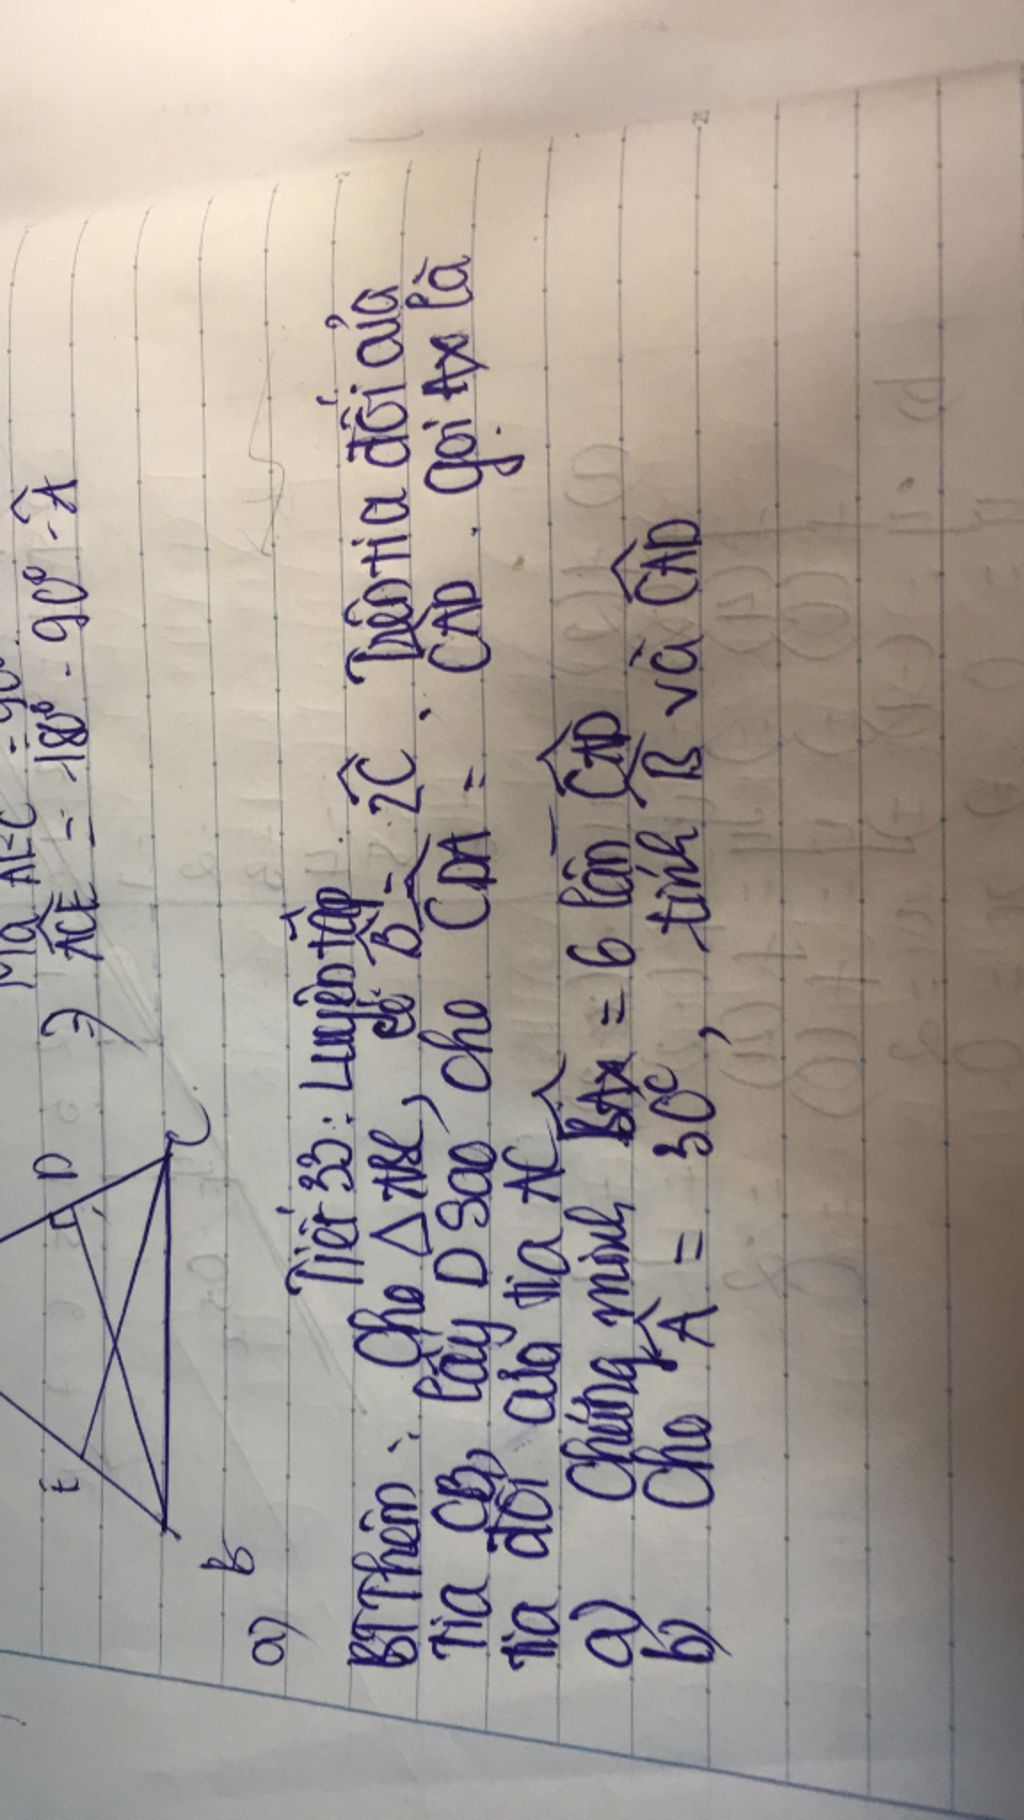 Mà AEC = 90°
⇒ ACE = 180° - 90° - Â
E
D
B
C
a)
Tiết 33: Luyện tập
BT Thêm: Cho △ ABC, có B̂ = 2Ĉ. Trên tia đối của
tia CB, lấy D sao cho CDA = CAD. Gọi Ax là
tia đối của tia AC
a) Chứng minh BAx = 6 lần CAD
b) Cho Â = 30°, tính B̂ và CAD